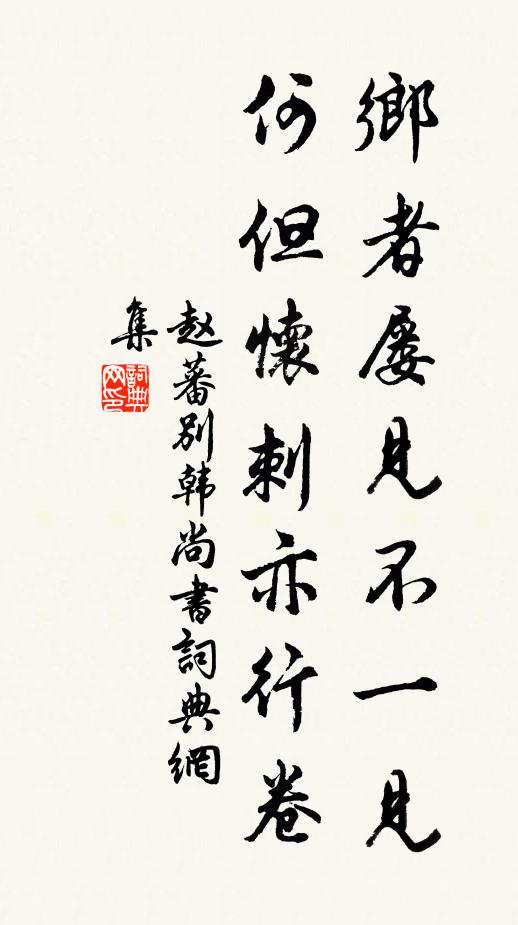 鄉者屡見不一見
何但懷刺亦行卷
赵蕃别韩尚書詞典網
集
詞典网印